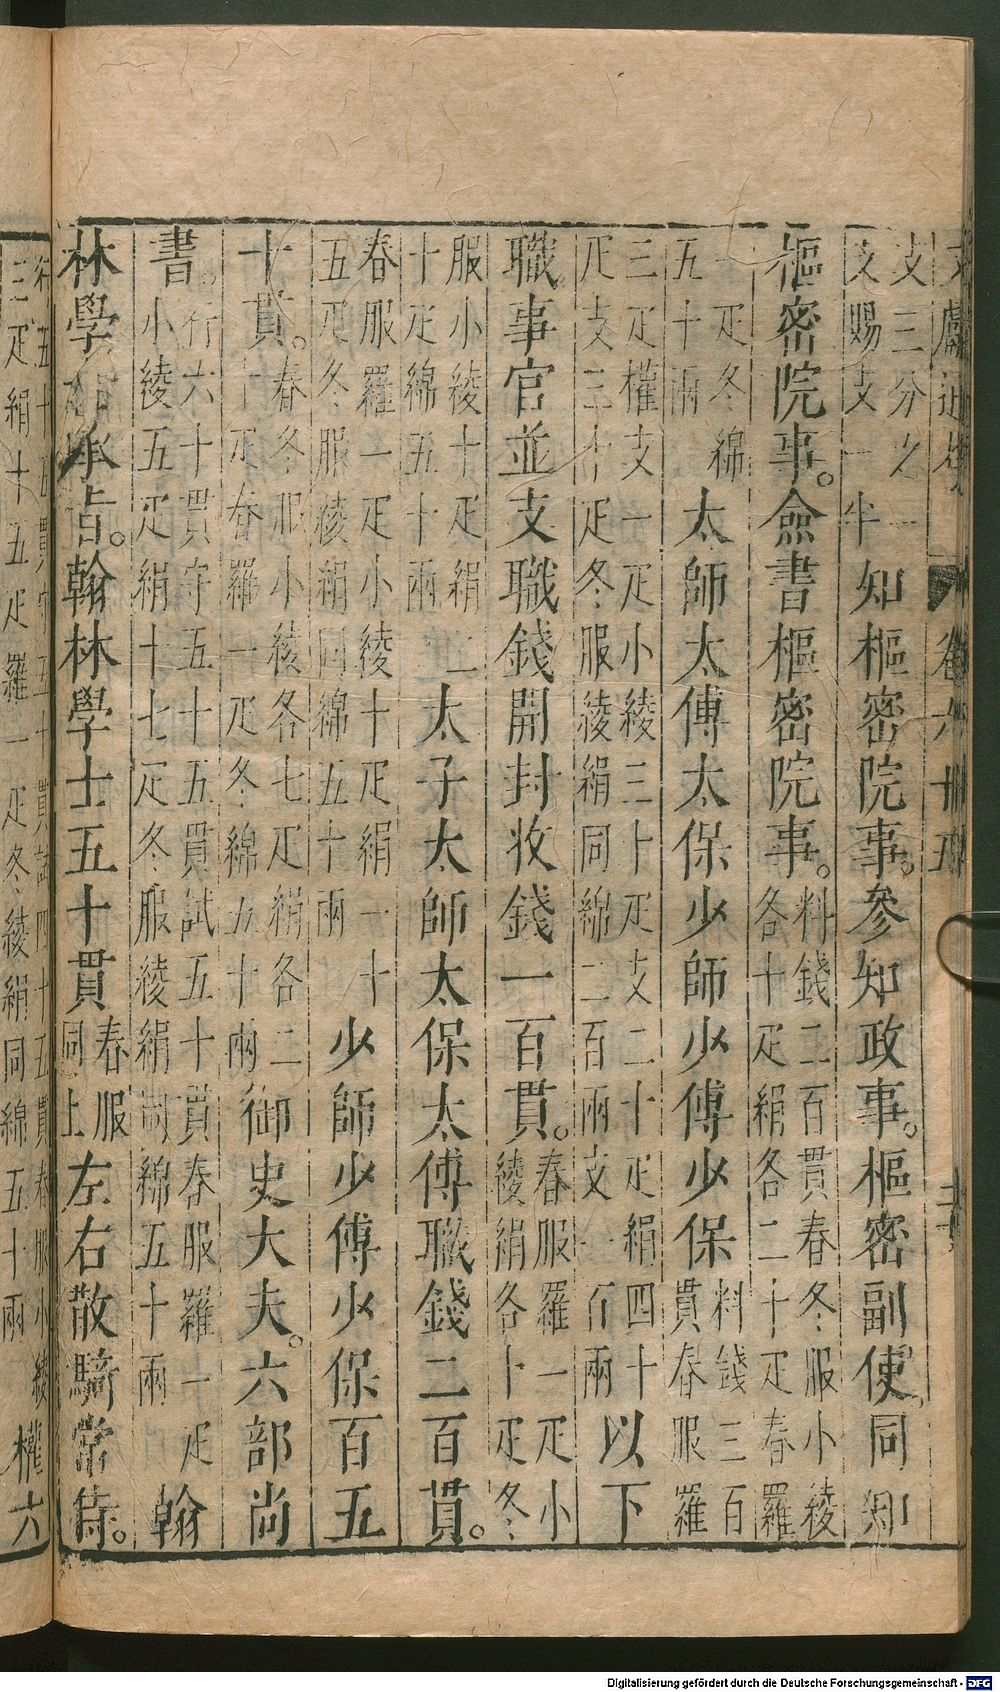 文獻通考　卷六十五
支三分之一
支賜支一半
知樞密院事。參知政事。樞密副使。同知
樞密院事。僉書樞密院事。
料錢二百貫春冬服小綾
各十疋絹各二十疋春羅
一疋冬綿
五十兩
太師太傅太保少師少傅少保
料錢三百
貫春服羅
三疋權支一疋小綾三十疋支二十疋絹四十
疋支三十疋冬服綾絹同綿二百兩支一百兩
以下
職事官並支職錢開封牧錢一百貫。
春服羅一疋小
綾絹各十疋冬
服小綾十疋絹二
十疋綿五十兩
太子太師太保太傅職錢二百貫。
春服羅一疋小綾十疋絹一十
五疋冬服綾絹同綿五十兩
少師少傅少保百五
十貫。
春冬服小綾各七疋絹各二
十疋春羅一疋冬綿五十兩
御史大夫。六部尚
書。
行六十貫守五十五貫試五十貫春服羅一疋
小綾五疋絹十七疋冬服綾絹同綿五十兩
翰
林學士承旨。翰林學士五十貫
春服
同上
左右散騎常侍。
行五十五貫守五十貫試四十五貫春服小綾
三疋絹十五疋羅一疋冬綾絹同綿五十兩
權六
Digitalisierung gefördert durch die Deutsche Forschungsgemeinschaft - DFG